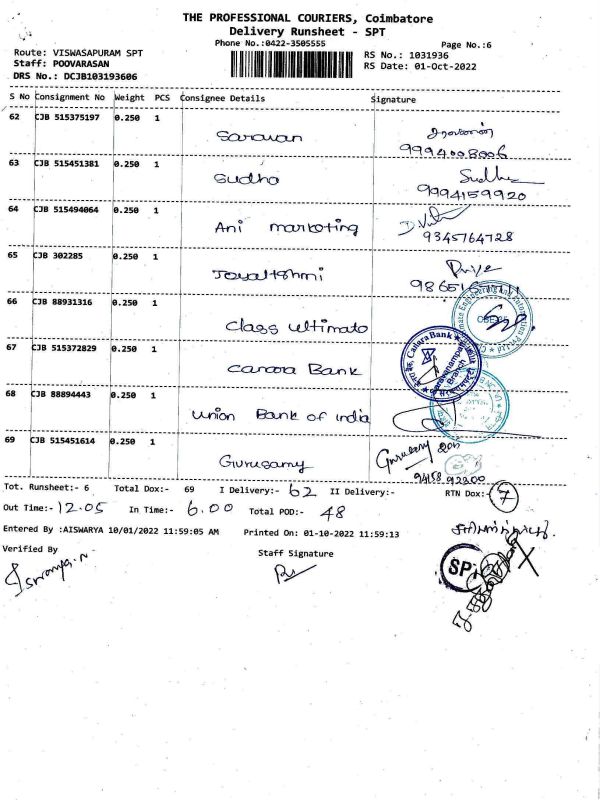 THE PROFESSIONAL COURIERS, Coimbatore
Delivery Runsheet - SPT
Phone No.:0422-3505555
Page No.:6
Route: VISWASAPURAM SPT
RS No.: 1031936
Staff: POOVARASAN
RS Date: 01-Oct-2022
DRS No.: DCJB103193606
S No Consignment No Weight PCS Consignee Details Signature
62 CJB 515375197 0.250 1
Saravan
9994008006
63 CJB 515451381 0.250 1
Sudha
Sudha
9994159920
64 CJB 515494064 0.250 1
Ani marketing
9345764728
65 CJB 302285 0.250 1
Jayalakshmi
Priya
66 CJB 88931316 0.250 1
Class ultimato
67 CJB 515372829 0.250 1
Canara Bank
Canara Bank
Saravanampatti
Branch
68 CJB 88894443 0.250 1
Union Bank of india
69 CJB 515451614 0.250 1
Gurusamy
Gurusamy
94158 92200
Tot. Runsheet:- 6 Total Dox:- 69 I Delivery:- 62 II Delivery:- RTN Dox:- 7
Out Time:- 12.05 In Time:- 6.00 Total POD:- 48
Entered By :AISWARYA 10/01/2022 11:59:05 AM Printed On: 01-10-2022 11:59:13
Verified By
Staff Signature
SPT